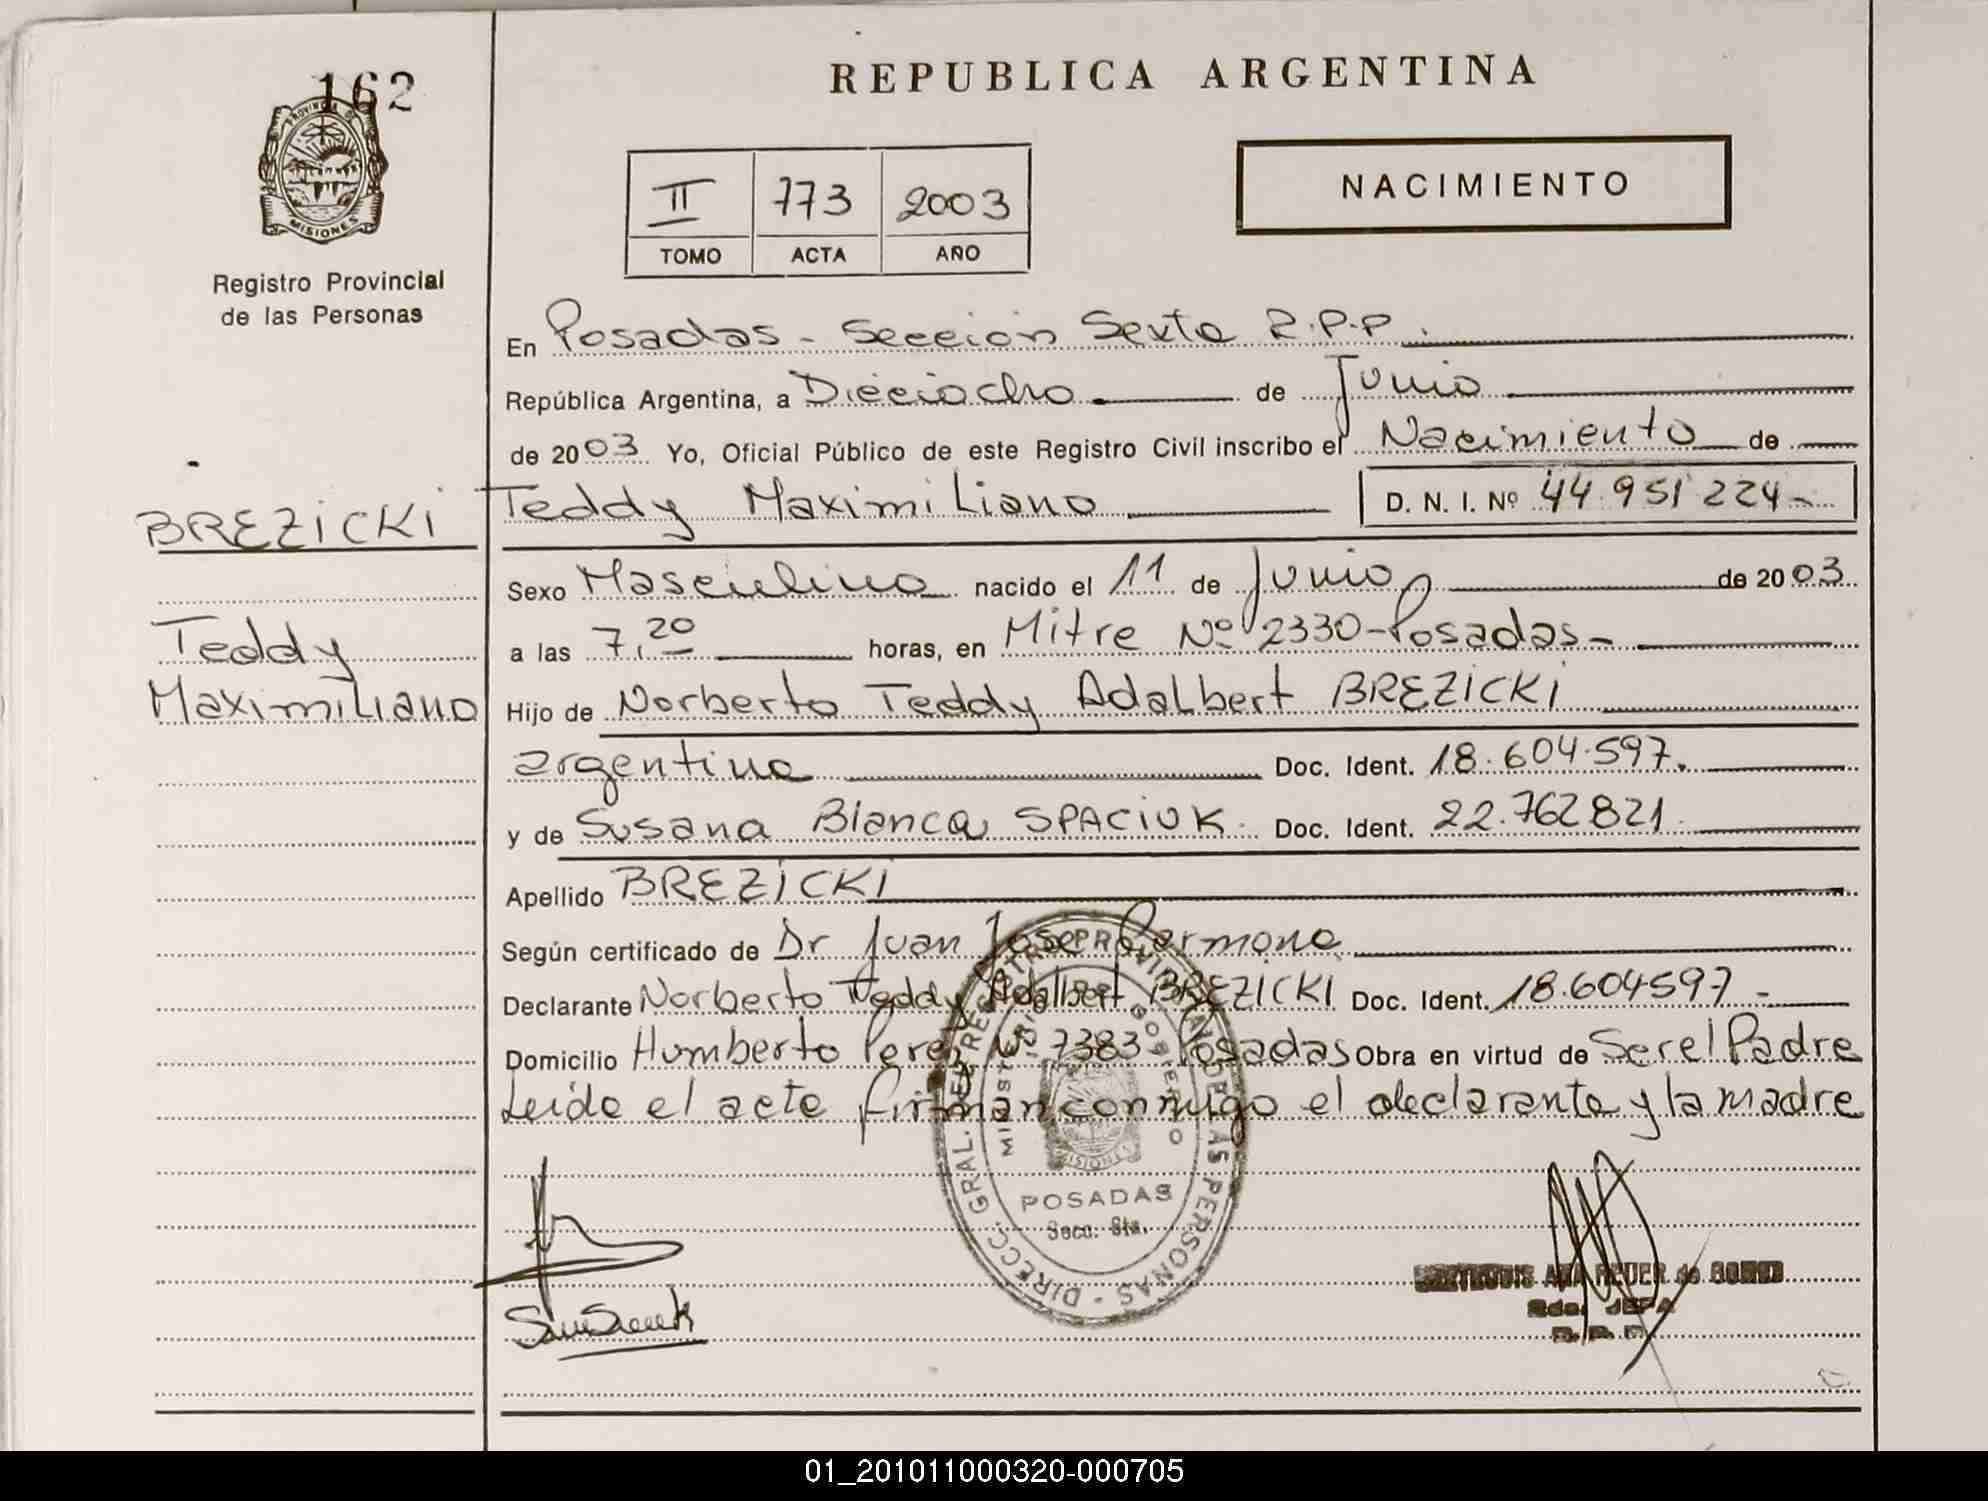 162
PROVINCIA DE
MISIONES
Registro Provincial
de las Personas
REPUBLICA ARGENTINA
II 773 2003
TOMO ACTA AÑO
NACIMIENTO
En Posadas - Sección Sexta R.P.P.
República Argentina, a Dieciocho de Junio
de 2003 Yo, Oficial Público de este Registro Civil inscribo el Nacimiento de
Teddy Maximiliano D. N. I. Nº 44.951 224
BREZICKI
Teddy
Maximiliano
Sexo Masculino nacido el 11 de Junio de 2003
a las 7,20 horas, en Mitre Nº 2330-Posadas-
Hijo de Norberto Teddy Adalbert BREZICKI
argentino Doc. Ident. 18.604.597.
y de Susana Blanca SPACIUK. Doc. Ident. 22.762821.
Apellido BREZICKI
Según certificado de Dr Juan Jose
Declarante Norberto Teddy Adalbert BREZICKI Doc. Ident. 18.604597-
Domicilio Humberto Perez Nº 7383 Posadas Obra en virtud de Ser el Padre
Leído el acta firman conmigo el declarante y la madre
DIRECC. GRAL. DEL REGISTRO PROVINCIAL DE LAS PERSONAS -
MINISTERIO GOBIERNO
MISIONES
POSADAS
Secc. 6ta.
JEFA
R.P.P.
01_201011000320-000705